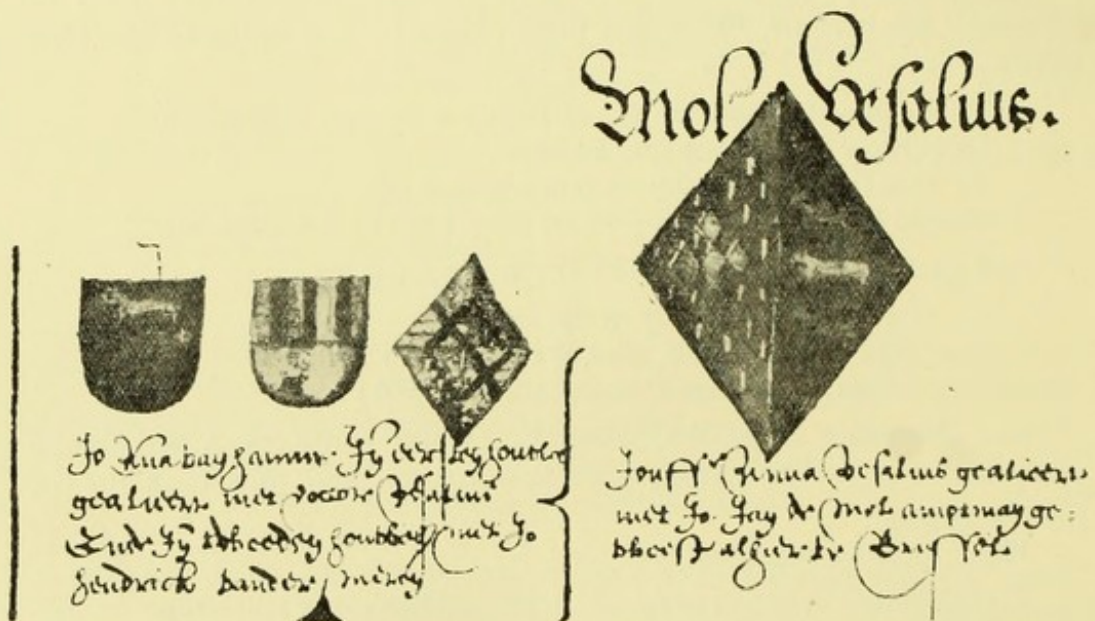 Mol Vesalius.
Jo Anna van Hamme Jn eersten houwelyck
gealieert met doctor Vesalius
Ende Jn tweeden houwelyck met Jo
hendrick vander meren
Jouffr Anna Vesalius gealieert
met Jo. Jan de Mol amptman ge:
weest alhier te Brussel